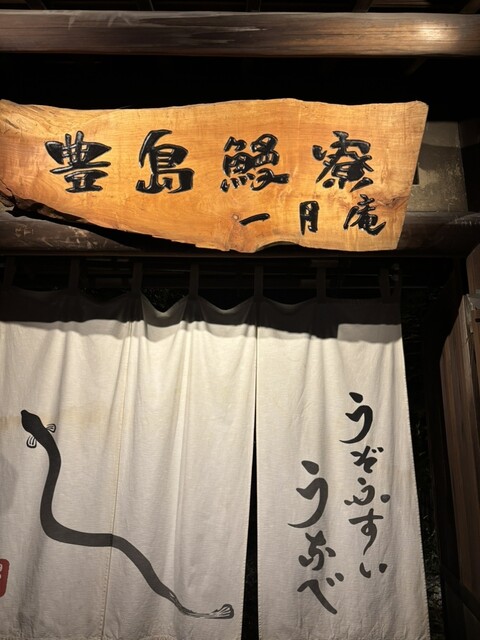 豊島鰻寮
一月庵
うぞふすい
うなべ